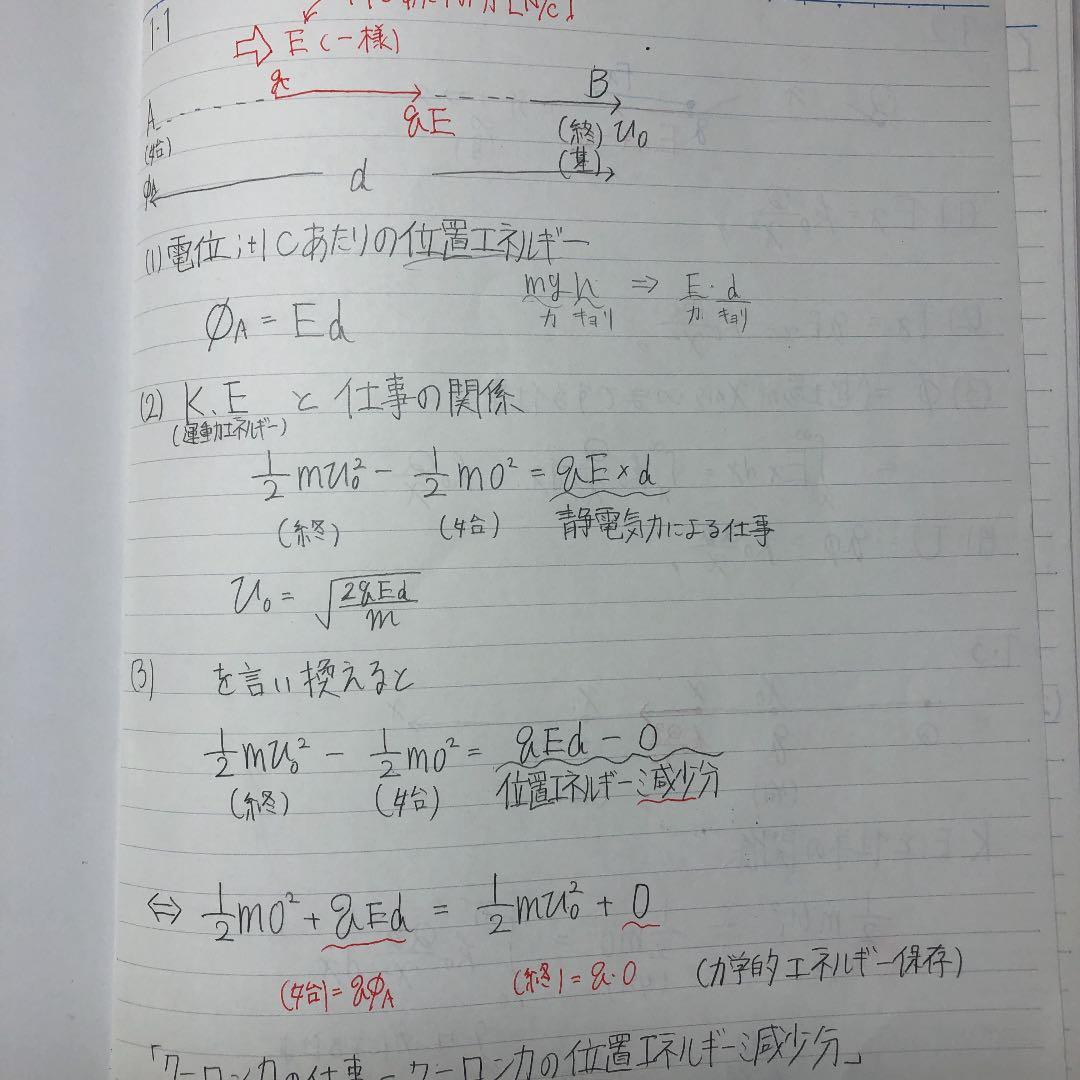 1・1
E(一様)
q
A B
qE (終) v₀
(始) (基)
φA d
(1) 電位;+1Cあたりの位置エネルギー
mgh ⇒ E・d
力 キョリ 力 キョリ
φA = Ed
(2) K.E と 仕事の関係
(運動エネルギー)
½mv₀² - ½m0² = qE×d
(終) (始) 静電気力による仕事
v₀ = √(2qEd/m)
(3) を言い換えると
½mv₀² - ½m0² = qEd - 0
(終) (始) 位置エネルギー減少分
⇔ ½m0² + qEd = ½mv₀² + 0
(始)=qφA (終)=q・0 (力学的エネルギー保存)
「クーロン力の仕事=クーロン力の位置エネルギー減少分」